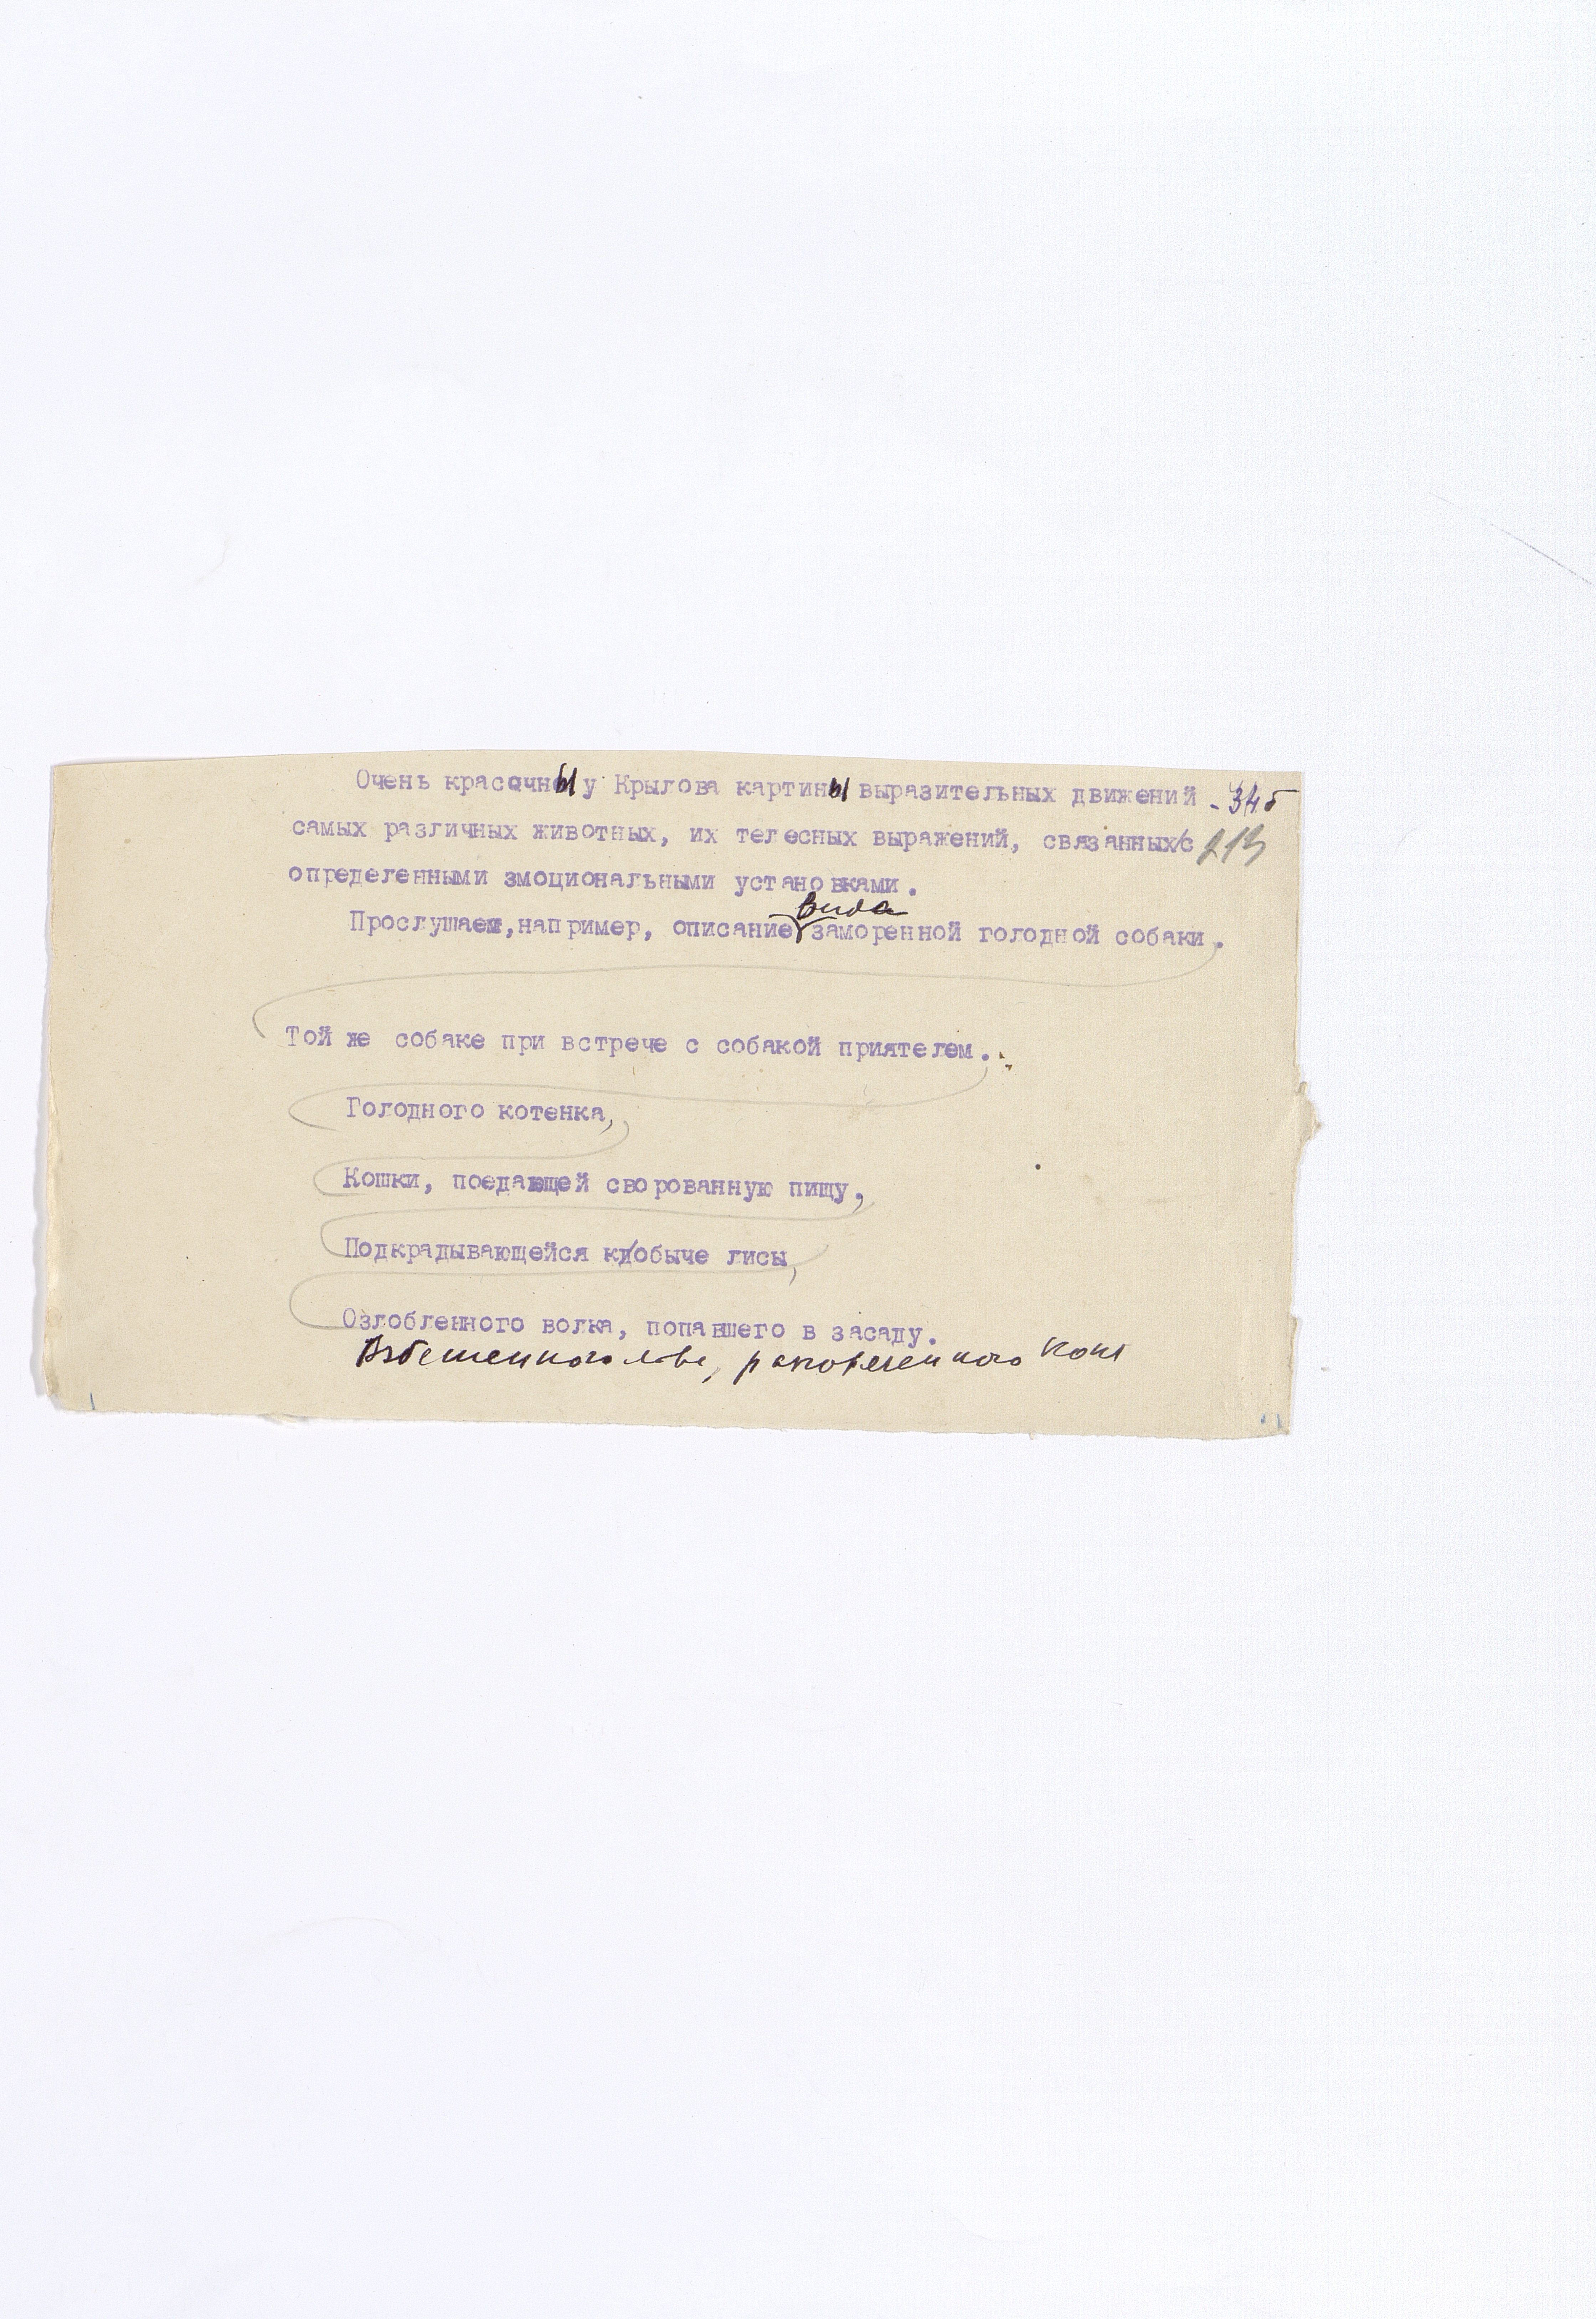 Очень красочны у Крылова картины выразительных движений - 34б
самых различных животных, их телесных выражений, связанных с 213
определенными эмоциональными установками.
вида
Прослушаем, например, описание заморенной голодной собаки.
Той же собаке при встрече с собакой приятелем.
Голодного котенка,
Кошки, поедающей сворованную пищу,
Подкрадывающейся к добыче лисы,
Озлобленного волка, попавшего в засаду.
Взбешенного льва, коня